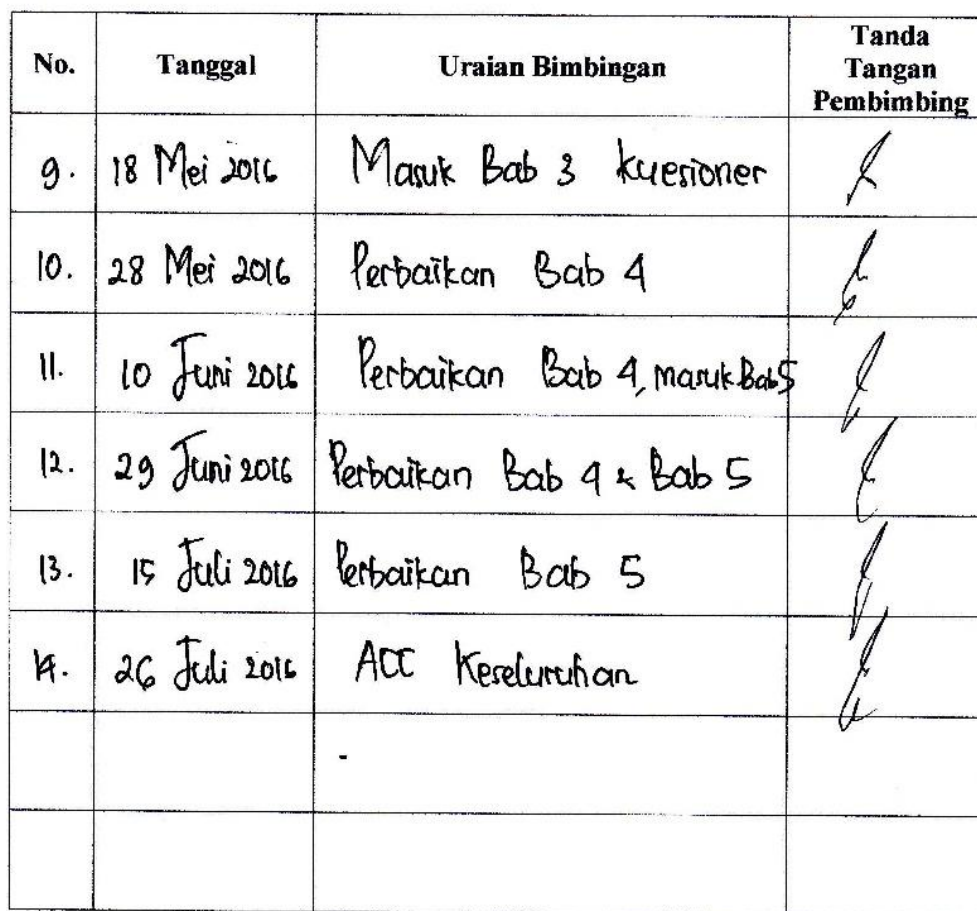 No. Tanggal Uraian Bimbingan Tanda Tangan Pembimbing
9. 18 Mei 2016 Masuk Bab 3 kuesioner
10. 28 Mei 2016 Perbaikan Bab 4
11. 10 Juni 2016 Perbaikan Bab 4, masuk Bab 5
12. 29 Juni 2016 Perbaikan Bab 4 & Bab 5
13. 15 Juli 2016 Perbaikan Bab 5
14. 26 Juli 2016 ACC Keseluruhan
-